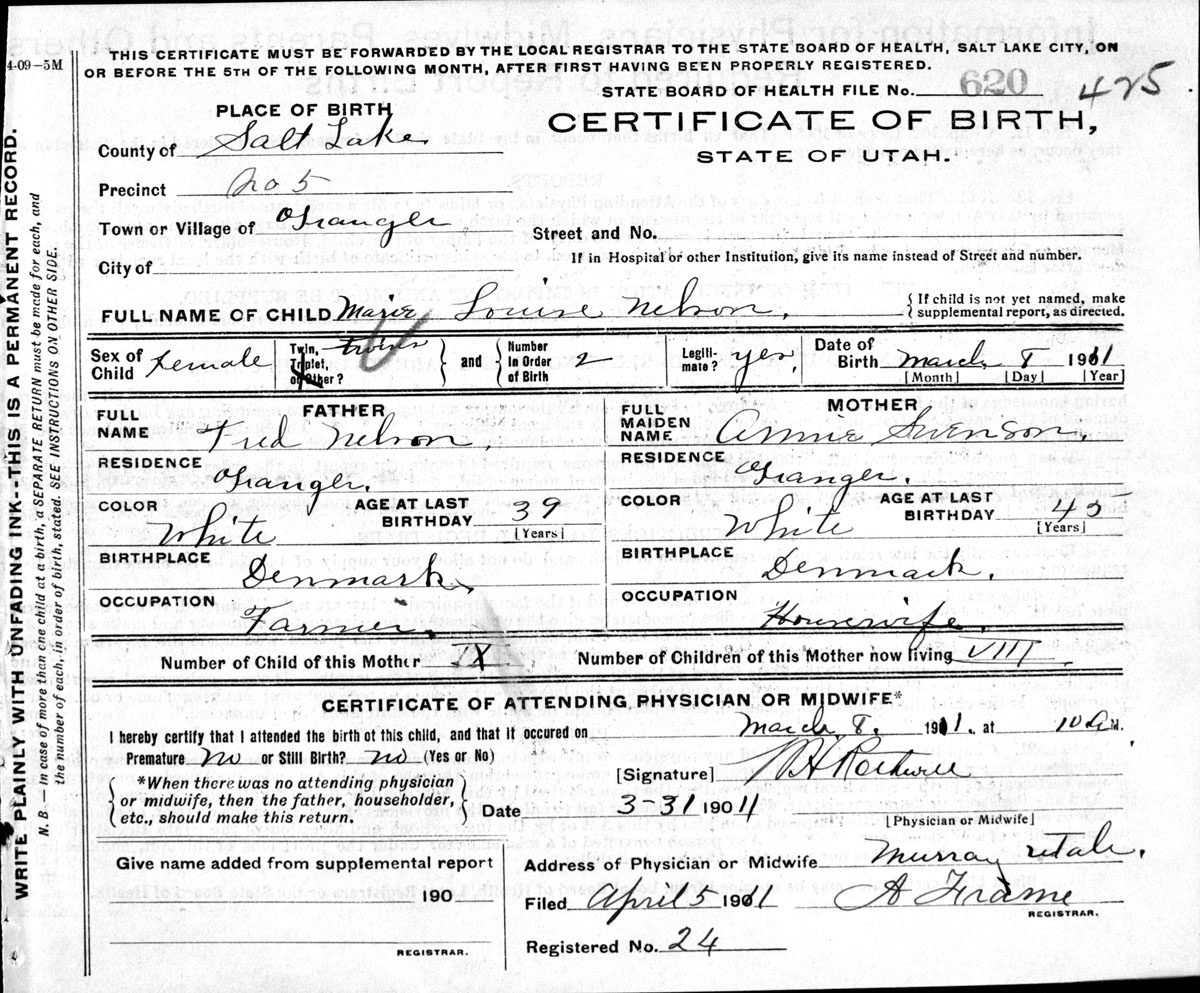 THIS CERTIFICATE MUST BE FORWARDED BY THE LOCAL REGISTRAR TO THE STATE BOARD OF HEALTH, SALT LAKE CITY, ON
4-09-5M
OR BEFORE THE 5TH OF THE FOLLOWING MONTH, AFTER FIRST HAVING BEEN PROPERLY REGISTERED.
STATE BOARD OF HEALTH FILE No. 620 425
PLACE OF BIRTH
CERTIFICATE OF BIRTH,
STATE OF UTAH.
County of Salt Lake.
Precinct No 5
Town or Village of Granger
Street and No.
City of
If in Hospital or other Institution, give its name instead of Street and number.
FULL NAME OF CHILD Marie Louise Nelson. { If child is not yet named, make supplemental report, as directed.
Sex of Child Female Twin, Triplet, or Other? twins } and { Number in Order of Birth 2 Legitimate? yes. Date of Birth March 8 1911
[Month] [Day] [Year]
FATHER
FULL NAME Fred Nelson.
RESIDENCE Granger.
COLOR White AGE AT LAST BIRTHDAY 39 [Years]
BIRTHPLACE Denmark.
OCCUPATION Farmer.
MOTHER
FULL MAIDEN NAME Annie Swenson.
RESIDENCE Granger.
COLOR White AGE AT LAST BIRTHDAY [Years]
BIRTHPLACE Denmark.
OCCUPATION Housewife.
Number of Child of this Mother IX Number of Children of this Mother now living VIII
CERTIFICATE OF ATTENDING PHYSICIAN OR MIDWIFE*
I hereby certify that I attended the birth of this child, and that it occured on March 8. 1911. at 10 A M.
Premature No or Still Birth? no (Yes or No)
[Signature]
*When there was no attending physician
or midwife, then the father, householder,
etc., should make this return.
Date 3-31 1911
[Physician or Midwife]
Give name added from supplemental report
190
REGISTRAR.
Address of Physician or Midwife Murray Utah.
Filed April 5 1911 A Frame
REGISTRAR.
Registered No. 24
WRITE PLAINLY WITH UNFADING INK--THIS IS A PERMANENT RECORD.
N. B.—In case of more than one child at a birth, a SEPARATE RETURN must be made for each, and
the number of each, in order of birth, stated. SEE INSTRUCTIONS ON OTHER SIDE.